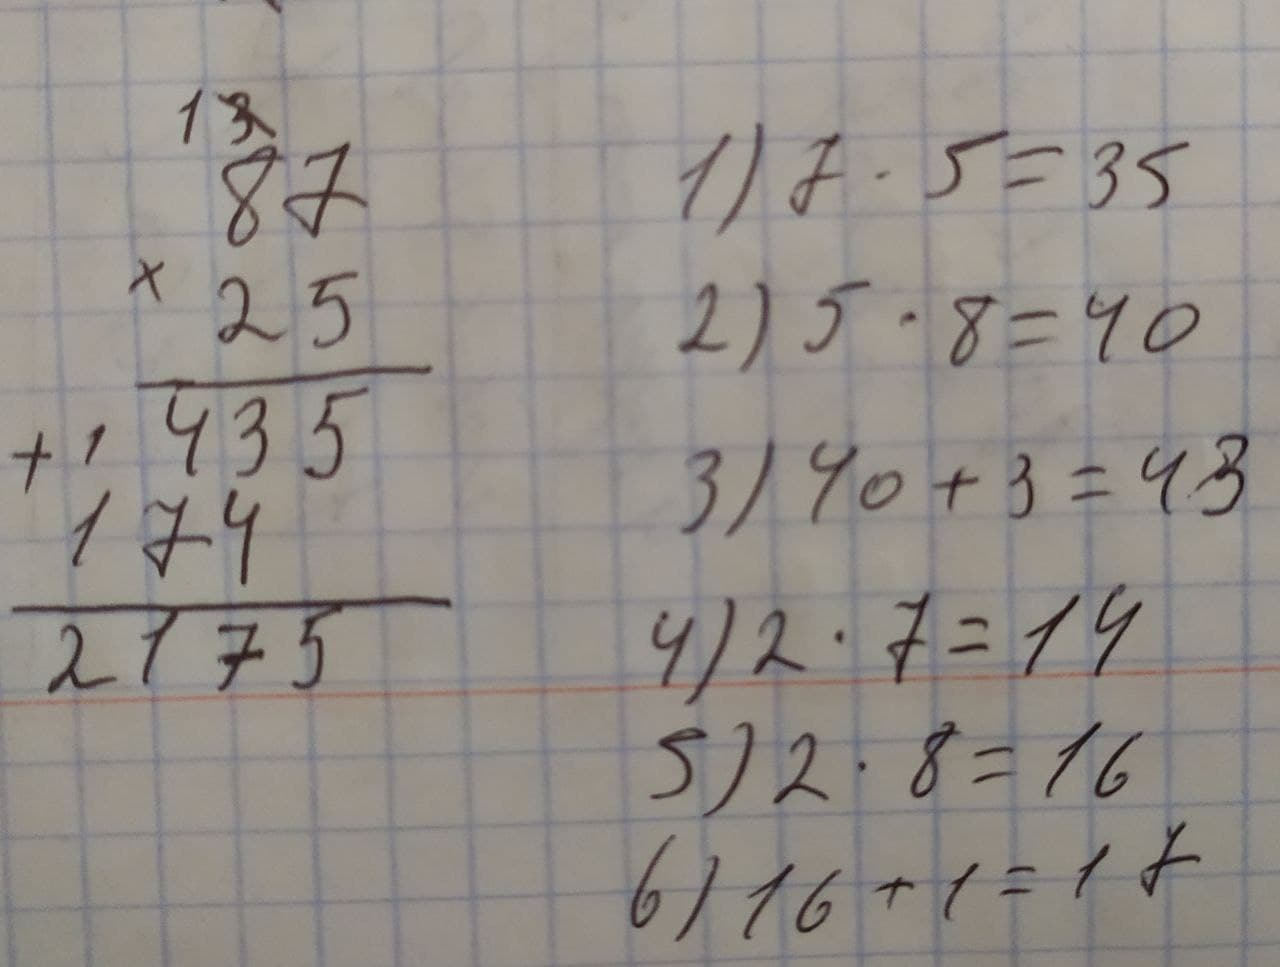 1 3
87
× 25
435
+ 1
174
2175
1) 7 · 5 = 35
2) 5 · 8 = 40
3) 40 + 3 = 43
4) 2 · 7 = 14
5) 2 · 8 = 16
6) 16 + 1 = 17